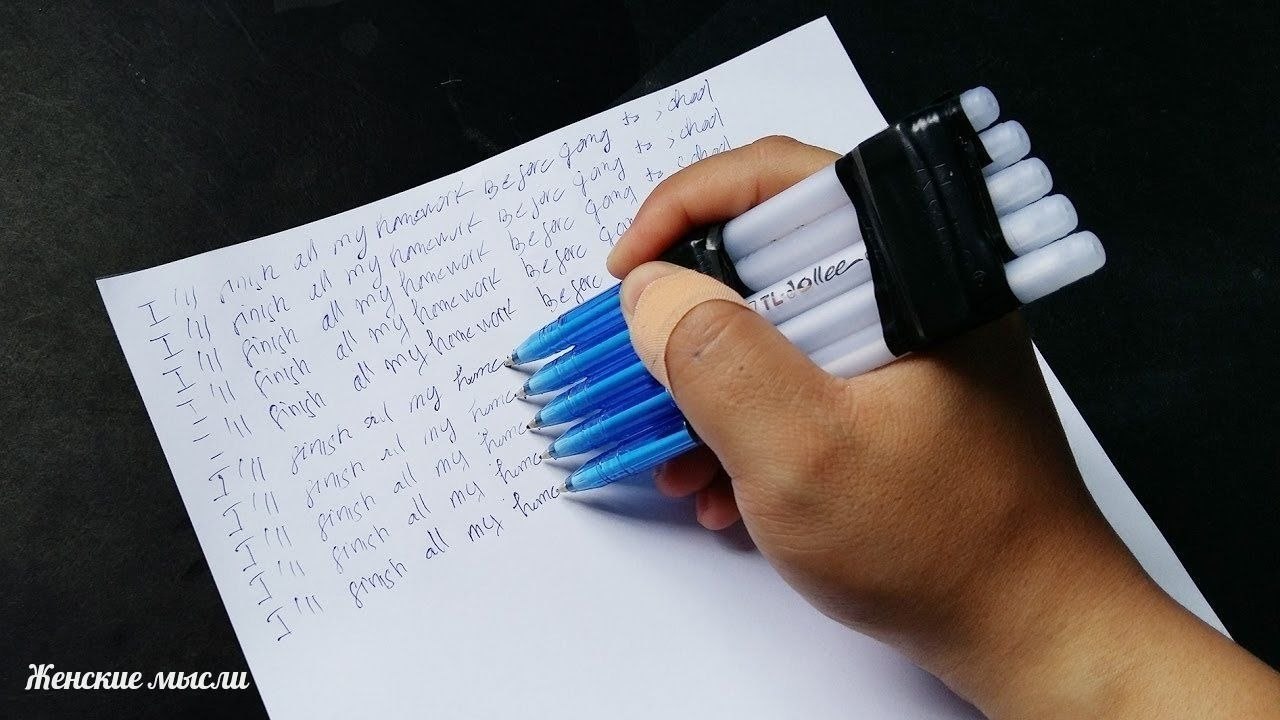 I'll finish all my homework before going to school
I'll finish all my homework before going to school
I'll finish all my homework before going to school
I'll finish all my homework before
I'll finish all my homework before
I'll finish all my home
I'll finish all my home
I'll finish all my home
I'll finish all my home
I'll finish all my home
TL-dollee
Женские мысли